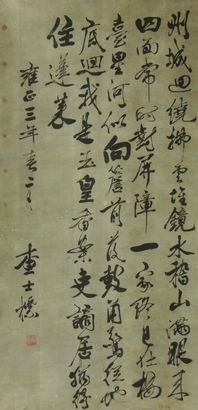 州城迴繞拂雲堆鏡水稽山滿眼來
四面常時對屏障一家終日在樓
臺星河似向簷前落鼓角驚從地
底迴我是玉皇香案吏謫居猶得
住蓬萊
雍正三年春二月
查士標